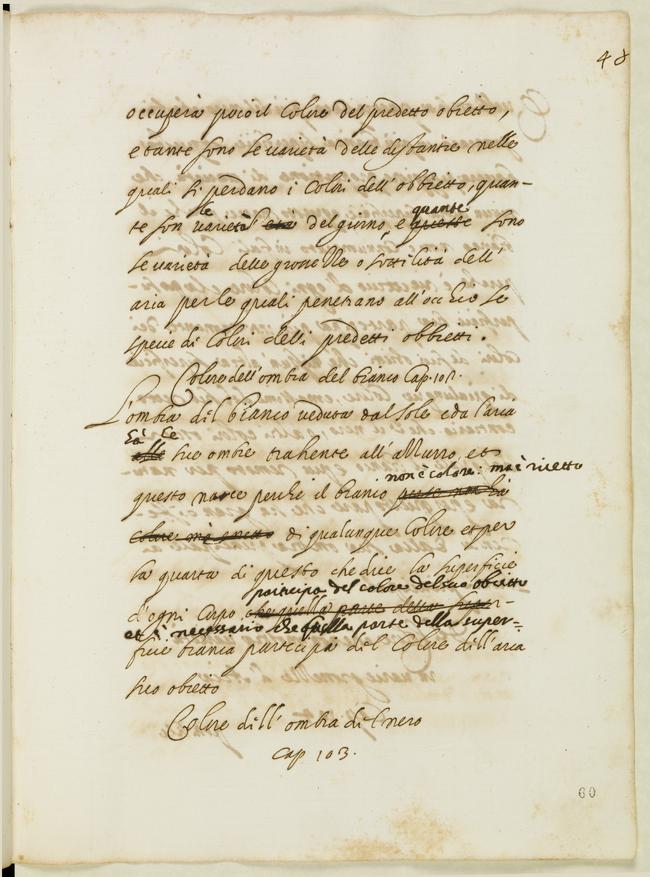 48
occuperà poco il Colore del predetto obietto,
e tante sono le varietà delle distantie nelle
quali si perdano i Colori dell'obbietto, quan-
te son le varietà del giorno, e quante sono
le varietà delle grosse o sottilità dell'
aria per le quali penetrano all'occhio le
specie di Colori delli predetti obbietti.
Colore dell'ombra del bianco Cap.
L'ombra del bianco veduta dal sole e da l'aria
hà le sue ombre trahente all'aZurro, et
questo nasce perche il bianco non è colore: ma è ricetto
di qualunque Colore et per
la quarta di questo che dice la superficie
d'ogni Corpo participa del colore del suo obietto
et è necessario che quella parte della super-
ficie bianca participa del Colore dell'aria
suo obietto
Colore dell'ombra di nero
Cap 103.
60